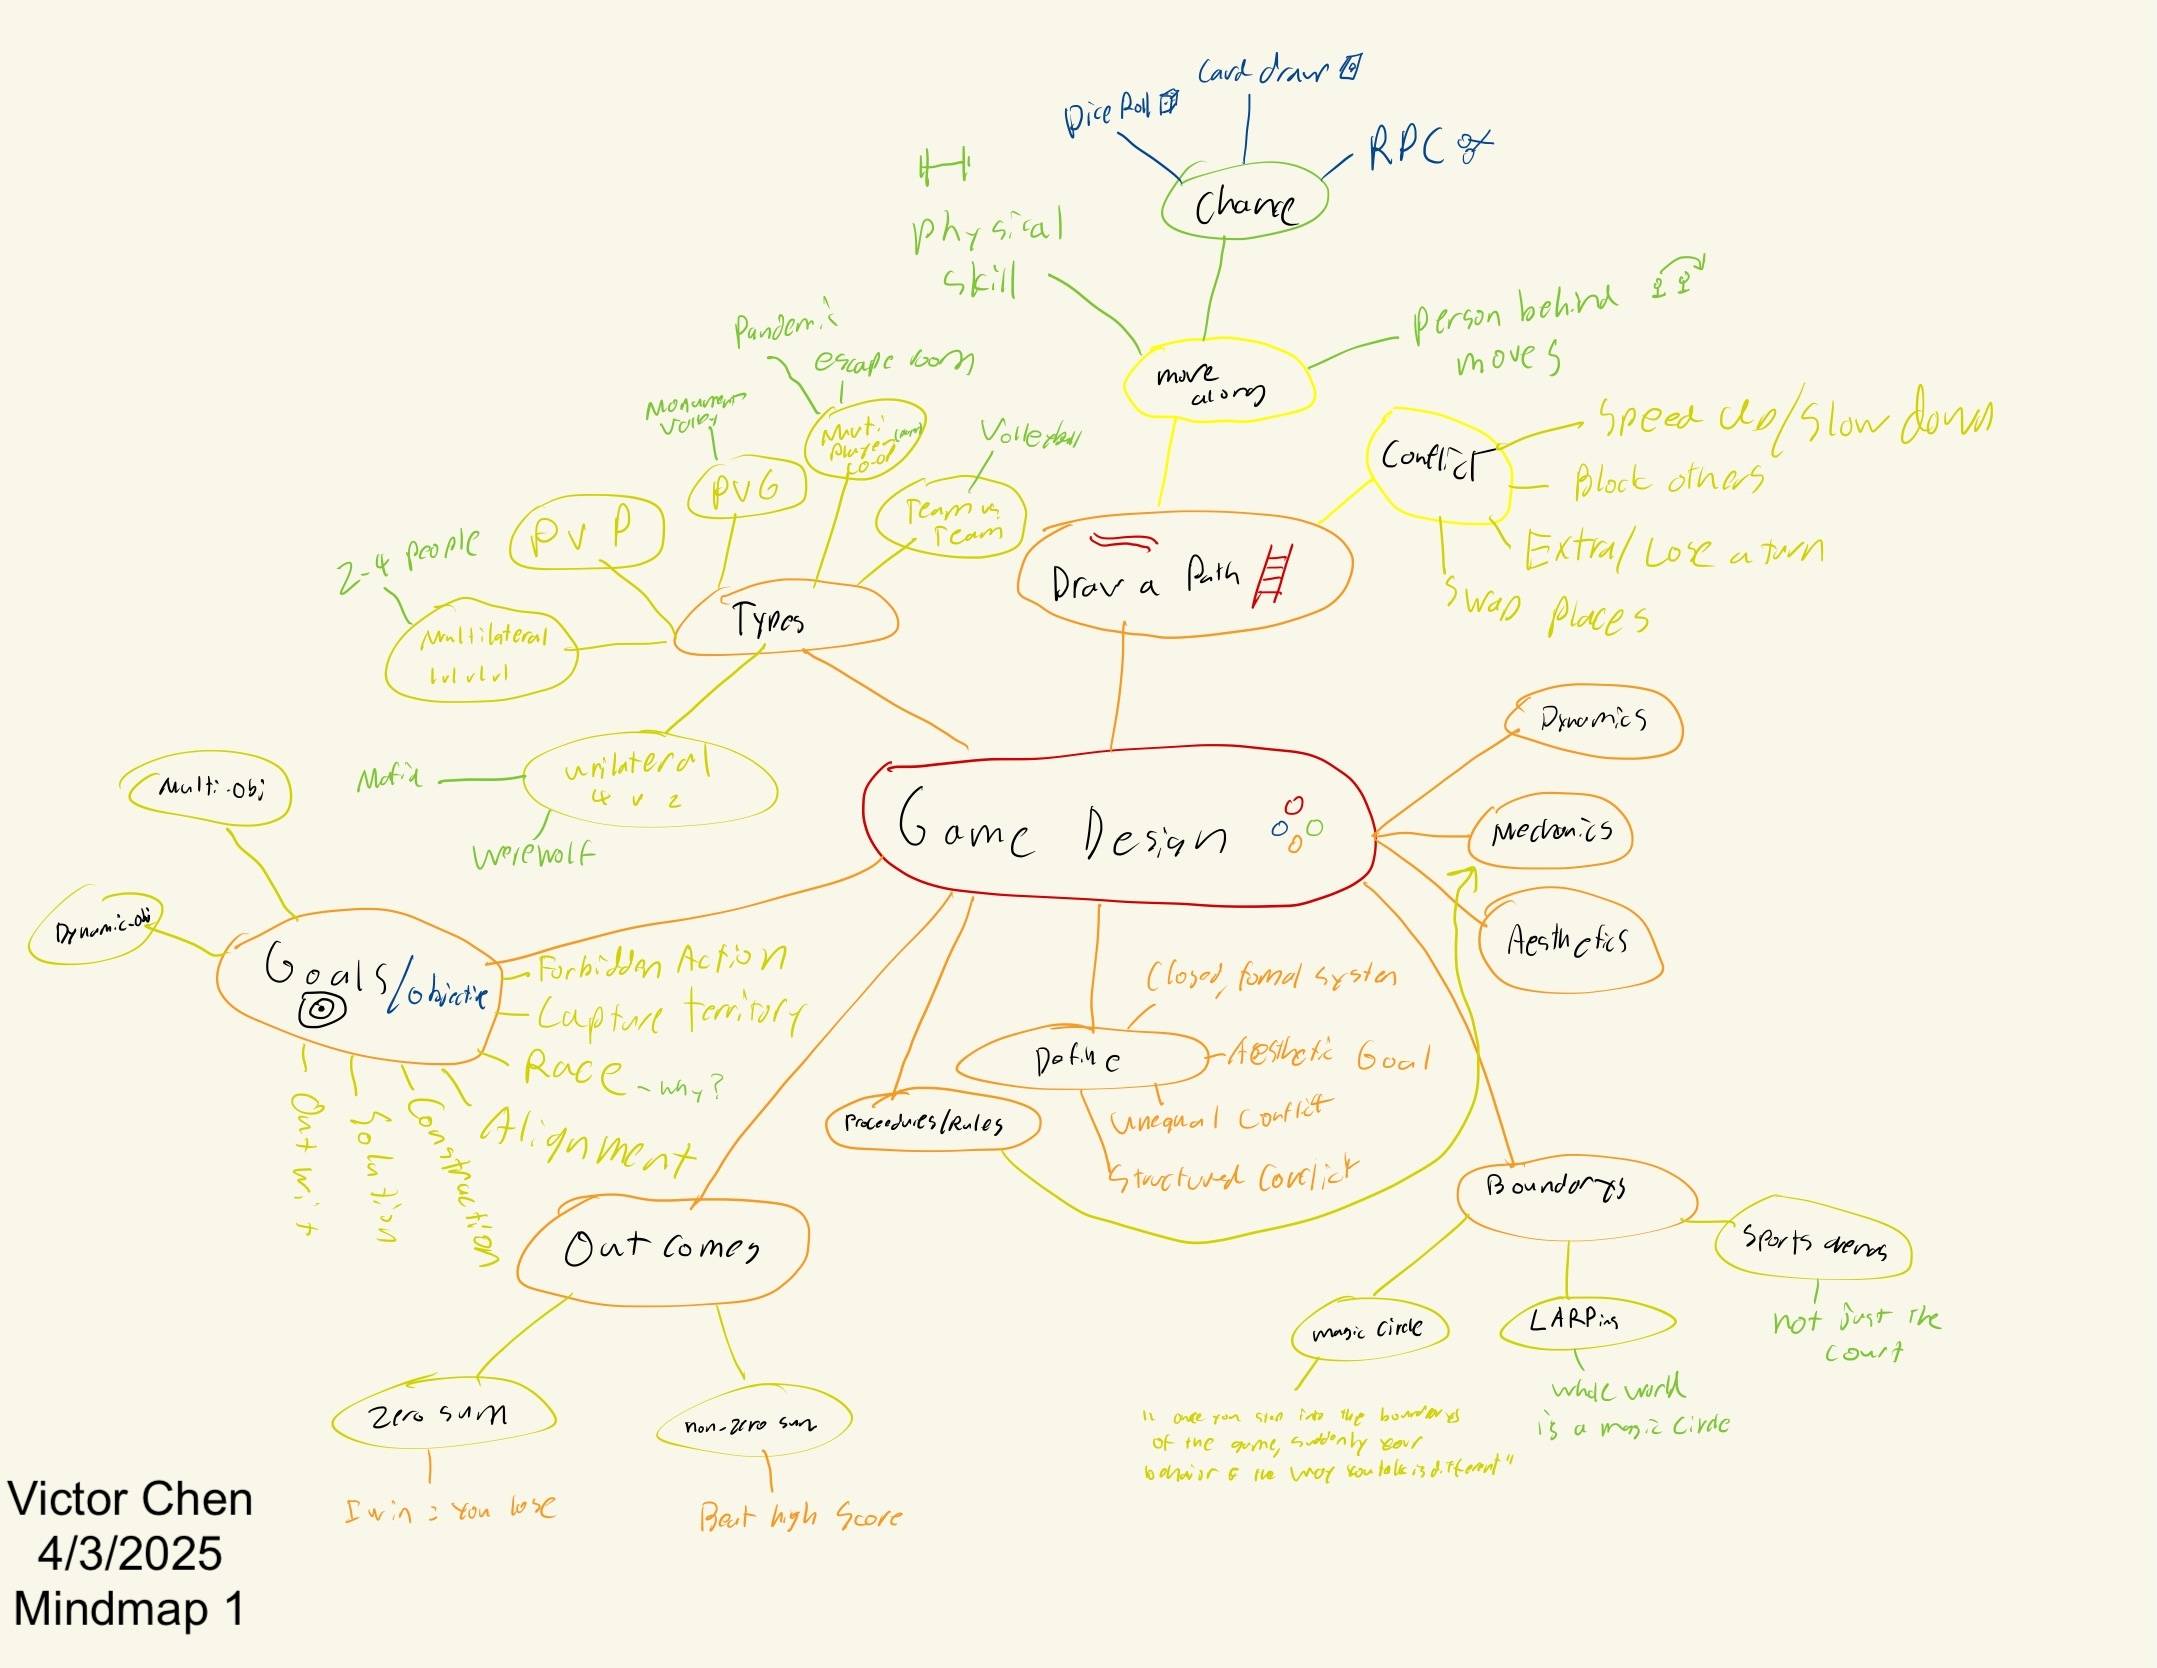 Card draw
Dice Roll
RPC
Chance
physical
skill
Person behind
moves
move
along
Pandemic
escape room
Monument
Valley
Volleyball
Multi
player
CO-OP
PVG
Team vs.
Team
PvP
2-4 people
Multilateral
1v1v1v1
Types
Draw a Path
Conflict
Speed Up/Slow down
Block others
Extra/Lose a turn
Swap places
unilateral
4 v 2
Mafia
Werewolf
Game Design
Dynamics
Mechanics
Aesthetics
Multi-obj
Dynamic-obj
Goals/objective
Forbidden Action
Capture territory
Race - why?
Alignment
Construction
Solution
Outwit
Closed, formal system
Define
Aesthetic Goal
unequal conflict
Structured Conflict
Proceedures/Rules
Outcomes
Zero sum
I win = You lose
non-zero sum
Beat high score
Boundarys
magic circle
"once you step into the boundarys
of the game, suddenly your
behavior & the way you talk is different"
LARPing
whole world
is a magic circle
Sports arenas
not just the
court
Victor Chen
4/3/2025
Mindmap 1